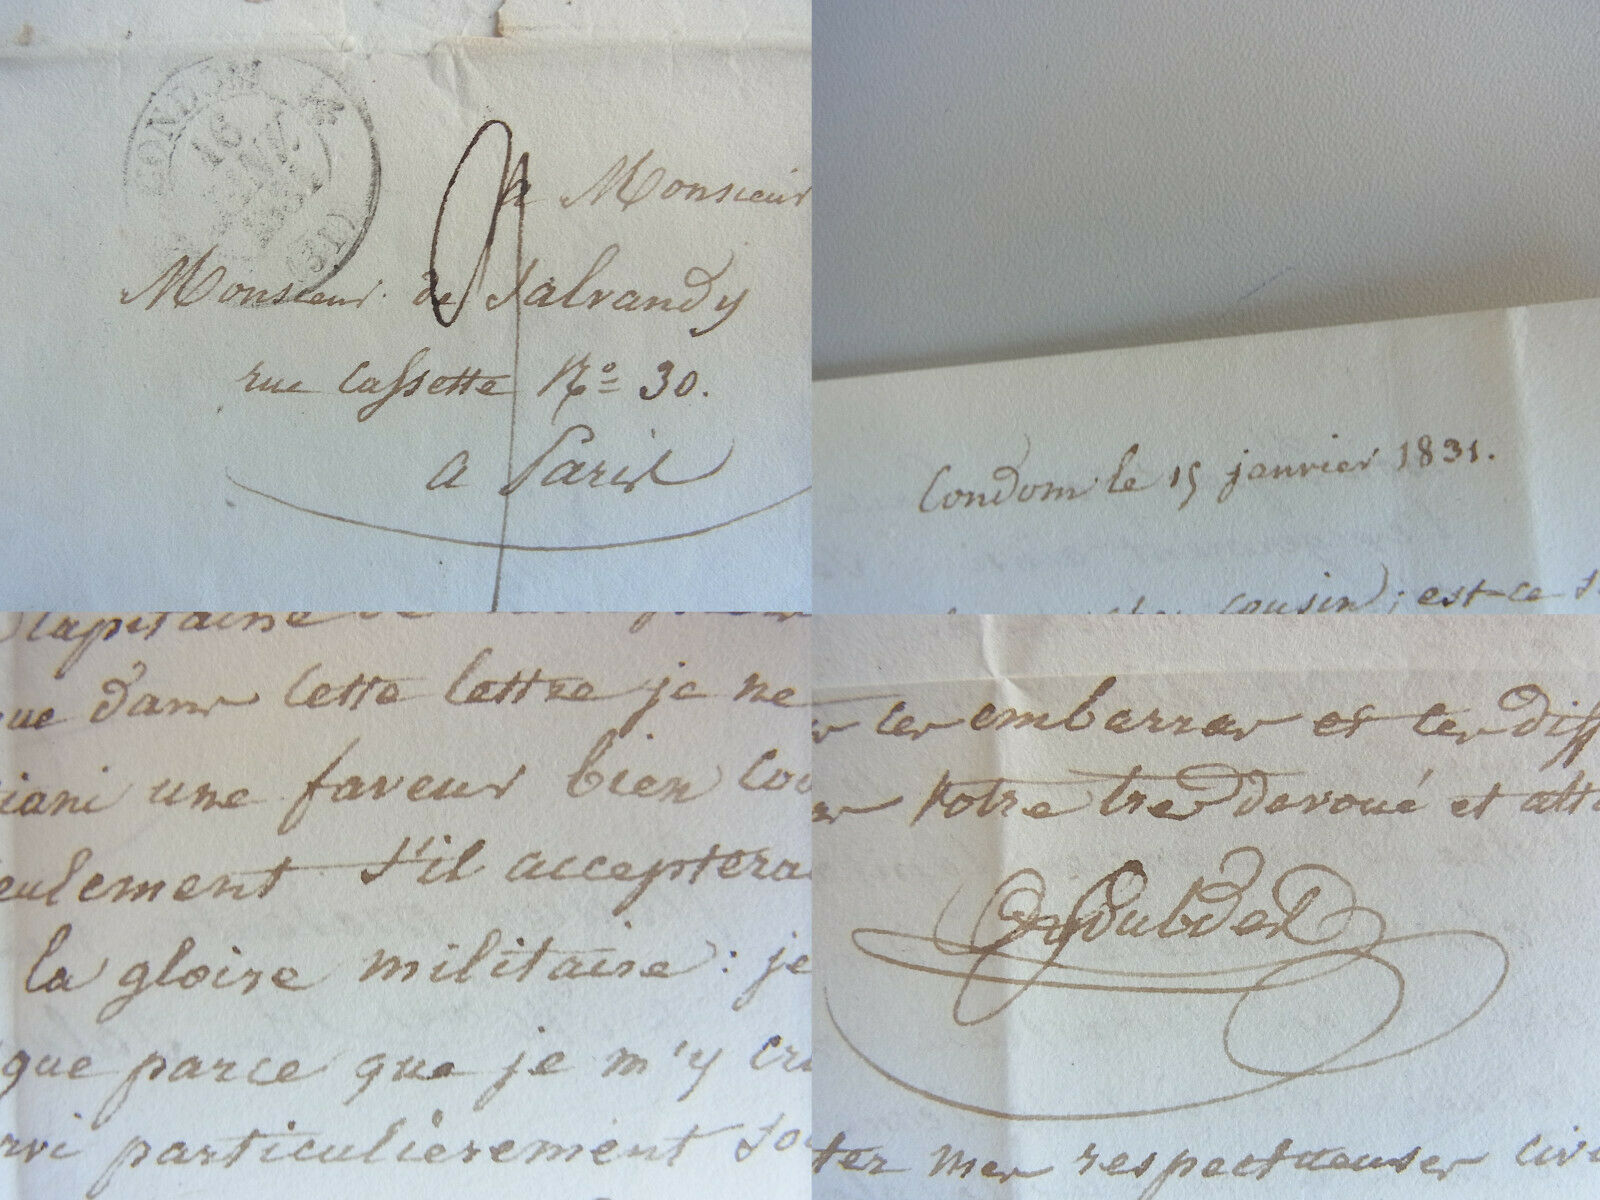 CONDOM
16
JANV.
(31)
A Monsieur
Monsieur de Salvandy
rue Cassette No 30.
a Paris
Condom le 15 janvier 1831.
cousin; est-ce
capitaine de
que dans cette lettre je ne
une faveur bien
seulement s'il accepter
la gloire militaire: je
que parce que je m'y
particulièrement
ces embarras et ces diff
votre tres devoué et atta
mes respectueuses civi